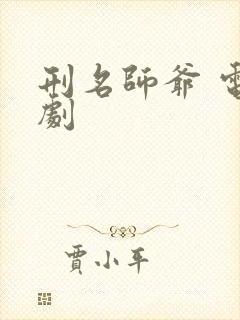 刑名師爺 電
劇
賈小平